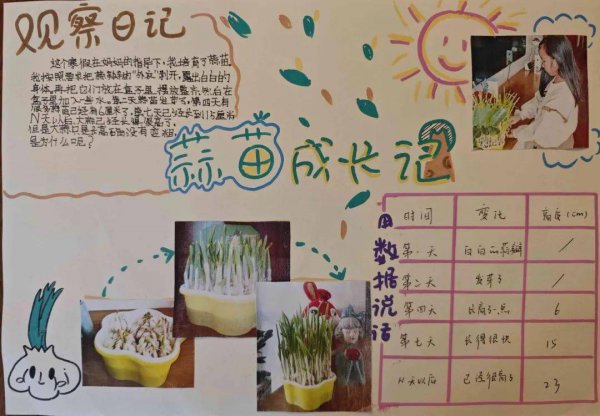 观察日记
这个寒假在妈妈的指导下,我培育了蒜苗
我按照要求把蒜瓣的“外衣”剥开,露出白白的
身体,再把它们放在盒子里,摆放整齐,然后在
盒子里加入一些水。第二天蒜苗发芽了,第四天有
6厘米了,第七天已经长到15厘米
N天以后大蒜已经长得很高了。
但是大蒜只长高
是为什么呢?
蒜苗成长记
用数据说话
时间 变化 高度(cm)
第一天 白白的蒜瓣 /
第二天 发芽了 /
第四天 长高了一点 6
第七天 长得很快 15
N天以后 已经很高了 23